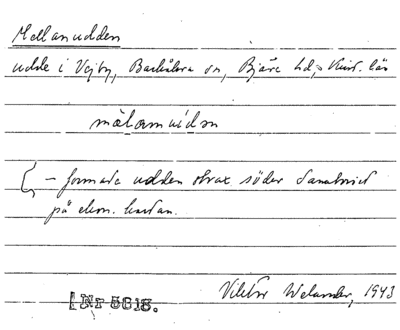 Mellanudden
udde i Vejby, Barkåkra sn, Bjäre hd, Krist. län
mälamúdn
– formade udden strax söder
på ekon. kartan.
[Nr 5618.
Viktor Welander, 1943